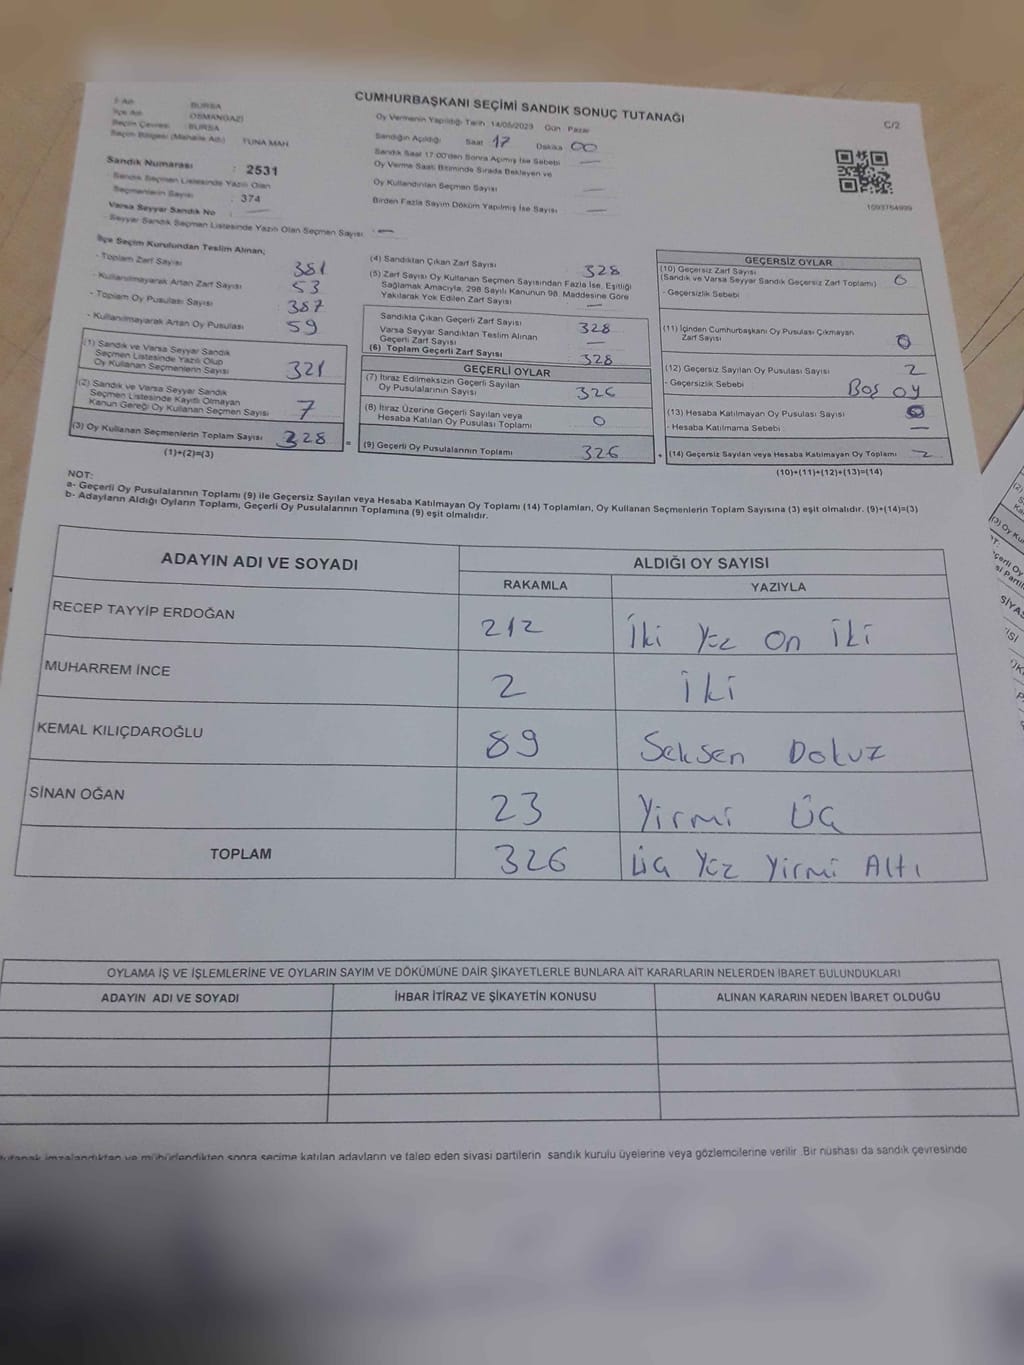 CUMHURBAŞKANI SEÇİMİ SANDIK SONUÇ TUTANAĞI
C/2
İl Adı BURSA
İlçe Adı OSMANGAZİ
Seçim Çevresi BURSA
Seçim Bölgesi (Mahalle Adı) TUNA MAH
Sandık Numarası : 2531
- Sandık Seçmen Listesinde Yazılı Olan
Seçmenlerin Sayısı : 374
Varsa Seyyar Sandık No : —
- Seyyar Sandık Seçmen Listesinde Yazılı Olan Seçmen Sayısı : —
Oy Vermenin Yapıldığı Tarih 14/05/2023 Gün Pazar
Sandığın Açıldığı Saat 17 Dakika 00
Sandık Saat 17:00'den Sonra Açılmış İse Sebebi —
Oy Verme Saati Bitiminde Sırada Bekleyen ve
Oy Kullandırılan Seçmen Sayısı —
Birden Fazla Sayım Döküm Yapılmış İse Sayısı —
1093764999
İlçe Seçim Kurulundan Teslim Alınan;
- Toplam Zarf Sayısı 381
- Kullanılmayarak Artan Zarf Sayısı 53
- Toplam Oy Pusulası Sayısı 387
- Kullanılmayarak Artan Oy Pusulası 59
(1) Sandık ve Varsa Seyyar Sandık
Seçmen Listesinde Yazılı Olup
Oy Kullanan Seçmenlerin Sayısı 321
(2) Sandık ve Varsa Seyyar Sandık
Seçmen Listesinde Kayıtlı Olmayan
Kanun Gereği Oy Kullanan Seçmen Sayısı 7
(3) Oy Kullanan Seçmenlerin Toplam Sayısı 328 =
(1)+(2)=(3)
(4) Sandıktan Çıkan Zarf Sayısı 328
(5) Zarf Sayısı Oy Kullanan Seçmen Sayısından Fazla İse, Eşitliği
Sağlamak Amacıyla, 298 Sayılı Kanunun 98. Maddesine Göre
Yakılarak Yok Edilen Zarf Sayısı —
Sandıkta Çıkan Geçerli Zarf Sayısı 328
Varsa Seyyar Sandıktan Teslim Alınan
Geçerli Zarf Sayısı —
(6) Toplam Geçerli Zarf Sayısı 328
GEÇERLİ OYLAR
(7) İtiraz Edilmeksizin Geçerli Sayılan
Oy Pusulalarının Sayısı 326
(8) İtiraz Üzerine Geçerli Sayılan veya
Hesaba Katılan Oy Pusulası Toplamı 0
(9) Geçerli Oy Pusulalarının Toplamı 326 +
GEÇERSİZ OYLAR
(10) Geçersiz Zarf Sayısı
(Sandık ve Varsa Seyyar Sandık Geçersiz Zarf Toplamı) 0
- Geçersizlik Sebebi
(11) İçinden Cumhurbaşkanı Oy Pusulası Çıkmayan
Zarf Sayısı 0
(12) Geçersiz Sayılan Oy Pusulası Sayısı 2
- Geçersizlik Sebebi Boş oy
(13) Hesaba Katılmayan Oy Pusulası Sayısı 0
- Hesaba Katılmama Sebebi —
(14) Geçersiz Sayılan veya Hesaba Katılmayan Oy Toplamı 2
(10)+(11)+(12)+(13)=(14)
NOT:
a- Geçerli Oy Pusulalarının Toplamı (9) ile Geçersiz Sayılan veya Hesaba Katılmayan Oy Toplamı (14) Toplamları, Oy Kullanan Seçmenlerin Toplam Sayısına (3) eşit olmalıdır. (9)+(14)=(3)
b- Adayların Aldığı Oyların Toplamı, Geçerli Oy Pusulalarının Toplamına (9) eşit olmalıdır.
ADAYIN ADI VE SOYADI ALDIĞI OY SAYISI
RAKAMLA YAZIYLA
RECEP TAYYİP ERDOĞAN 212 İki Yüz On İki
MUHARREM İNCE 2 İki
KEMAL KILIÇDAROĞLU 89 Seksen Dokuz
SİNAN OĞAN 23 Yirmi Üç
TOPLAM 326 Üç Yüz Yirmi Altı
OYLAMA İŞ VE İŞLEMLERİNE VE OYLARIN SAYIM VE DÖKÜMÜNE DAİR ŞİKAYETLERLE BUNLARA AİT KARARLARIN NELERDEN İBARET BULUNDUKLARI
ADAYIN ADI VE SOYADI İHBAR İTİRAZ VE ŞİKAYETİN KONUSU ALINAN KARARIN NEDEN İBARET OLDUĞU
tutanak imzalandıktan ve mühürlendikten sonra seçime katılan adayların ve talep eden siyasi partilerin sandık kurulu üyelerine veya gözlemcilerine verilir. Bir nüshası da sandık çevresinde